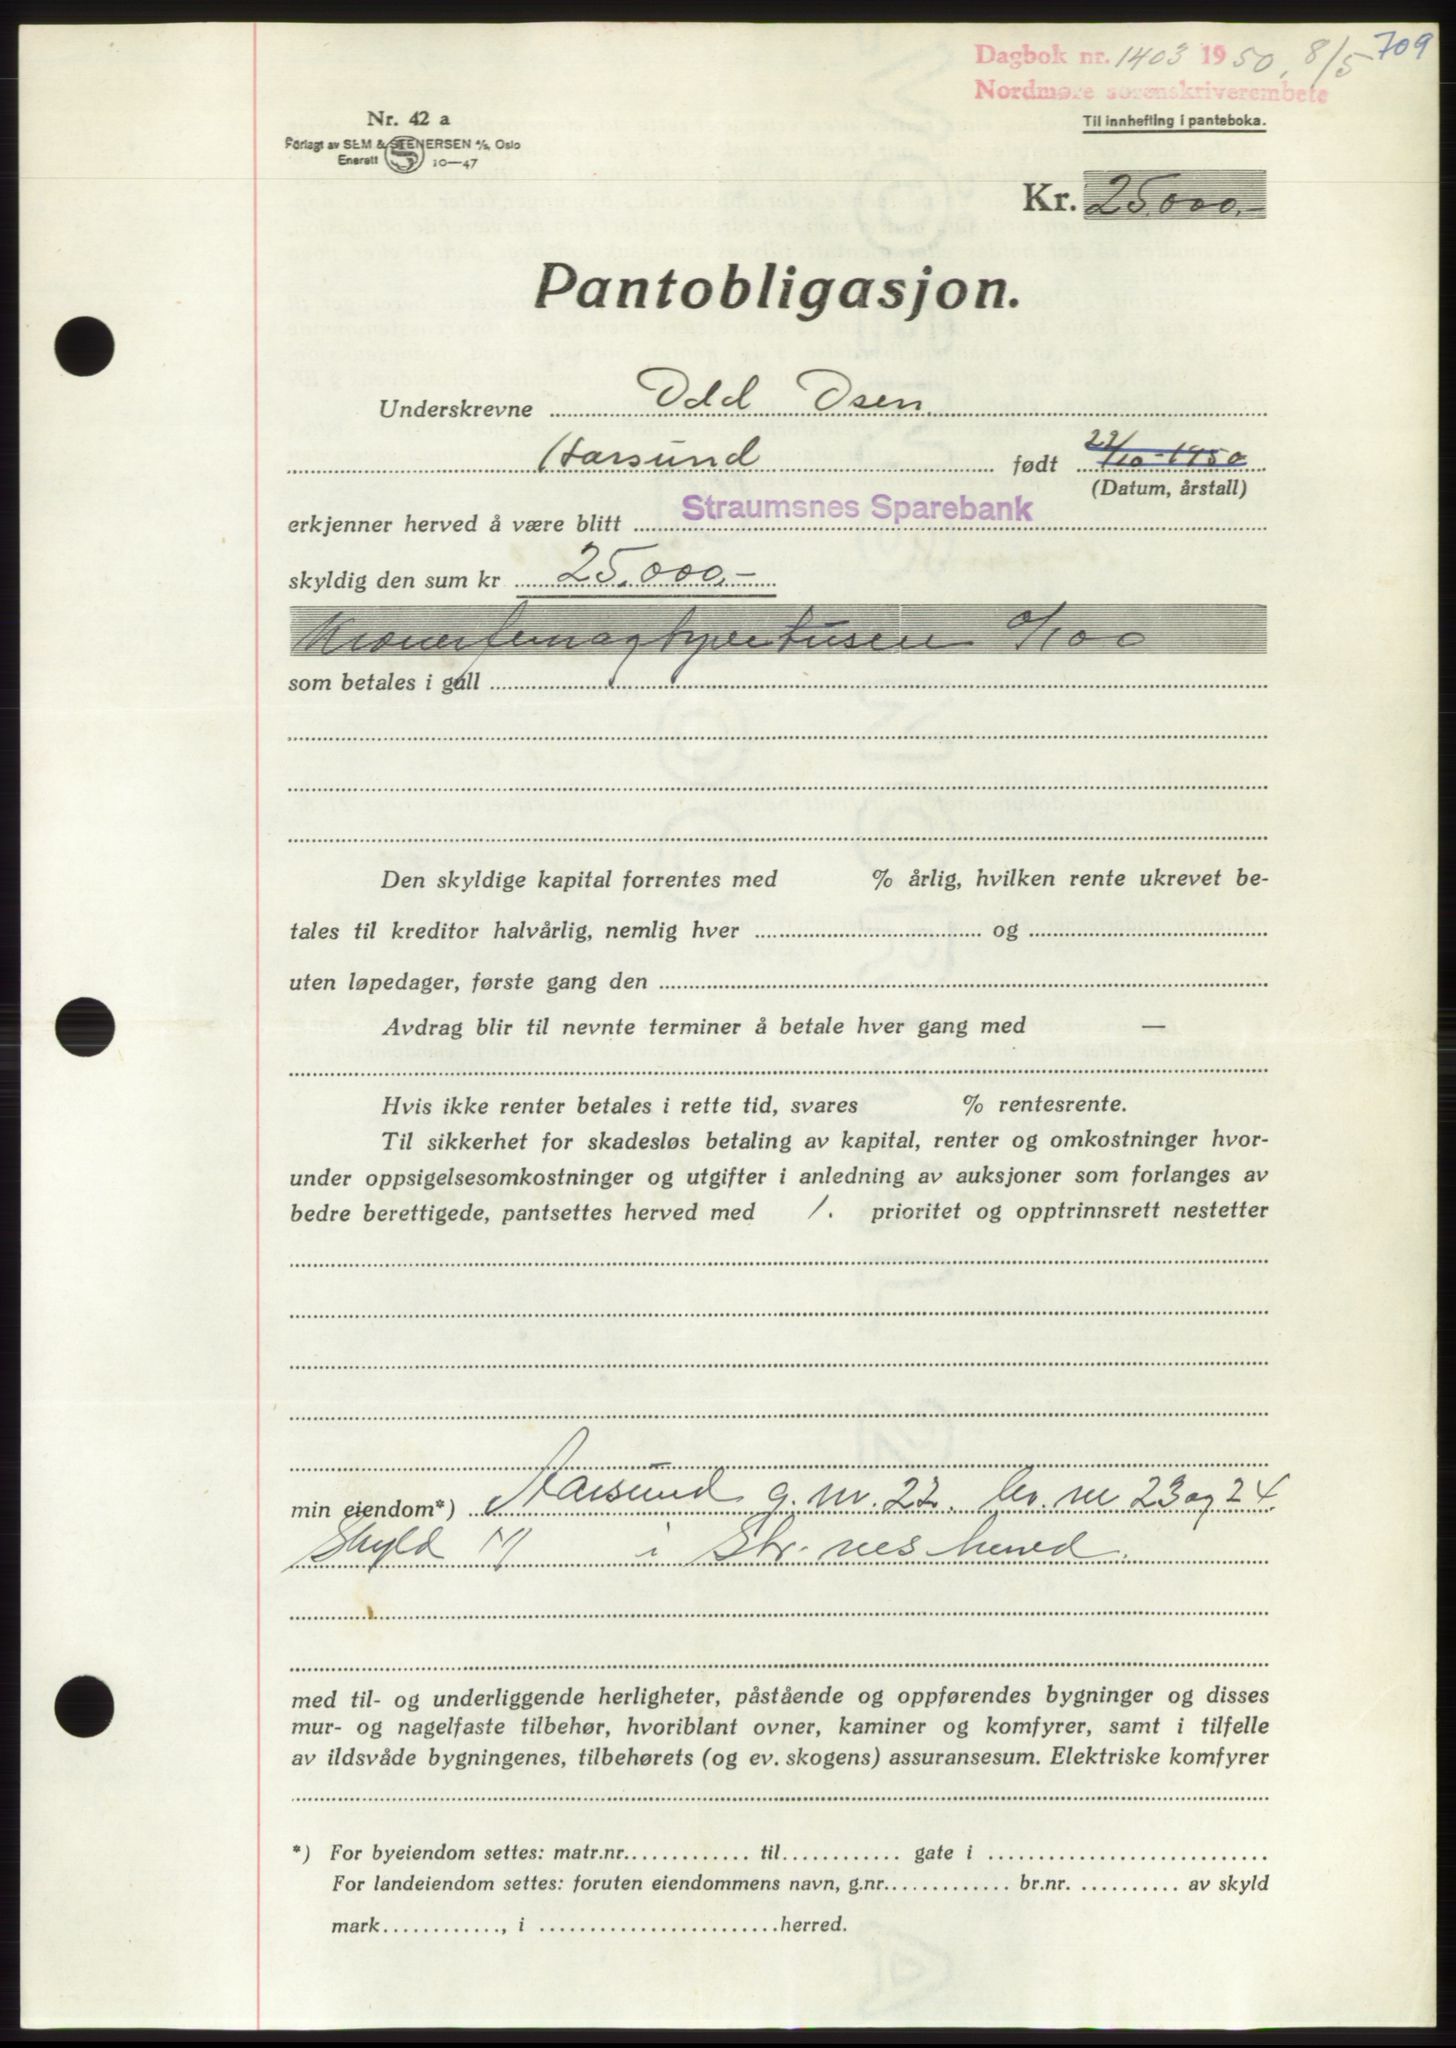 709
Dagbok nr. 1403 1950, 8/5
Nordmøre sorenskriverembete
Til innhefting i panteboka.
Nr. 42 a
Forlagt av SEM & STENERSEN A/S, Oslo
Enerett S 10—47
Kr. 25.000,-
Pantobligasjon.
Underskrevne Odd Osen
Aarsund født 22/10-1950
(Datum, årstall)
erkjenner herved å være blitt Straumsnes Sparebank
skyldig den sum kr 25.000,-
Kronerfemogtyvetusen 0/100
som betales i gull
Den skyldige kapital forrentes med % årlig, hvilken rente ukrevet be-
tales til kreditor halvårlig, nemlig hver og
uten løpedager, første gang den
Avdrag blir til nevnte terminer å betale hver gang med —
Hvis ikke renter betales i rette tid, svares % rentesrente.
Til sikkerhet for skadesløs betaling av kapital, renter og omkostninger hvor-
under oppsigelsesomkostninger og utgifter i anledning av auksjoner som forlanges av
bedre berettigede, pantsettes herved med 1. prioritet og opptrinnsrett nestetter
min eiendom*) Aarsund g. nr. 22. br. nr 23 og 24.
Skyld i Str. nes herred.
med til- og underliggende herligheter, påstående og oppførendes bygninger og disses
mur- og nagelfaste tilbehør, hvoriblant ovner, kaminer og komfyrer, samt i tilfelle
av ildsvåde bygningenes, tilbehørets (og ev. skogens) assuransesum. Elektriske komfyrer
*) For byeiendom settes: matr.nr. til gate i
For landeiendom settes: foruten eiendommens navn, g.nr. br.nr. av skyld
mark, i herred.